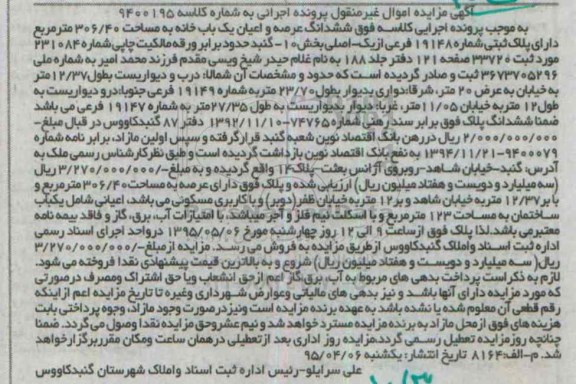 آگهی مزایده اموال غیرمنقول پرونده اجرائی به شماره کلاسه ۹۴۰۰۱۹۵
به موجب پرونده اجرایی کلاسه فوق ششدانگ عرصه و اعیان یک باب خانه به مساحت ۳۰۶/۴۰ مترمربع
دارای پلاک ثبتی شماره ۱۹۱۴۸ فرعی از یک-اصلی بخش۱۰- گنبد حدود برابر ورقه مالکیت چاپی شماره ۲۳۱۰۸۴
مورد ثبت ۳۳۷۲۰ صفحه ۱۲۱ دفتر جلد ۱۸۸ به نام غلام حیدر شیخ ویسی مقدم فرزند محمد امیر به شماره ملی
۳۶۷۳۷۰۵۲۹۶ ثبت و صادر گردیده است که حدود و مشخصات آن شمالا: درب و دیواریست بطول ۱۲/۳۷متر
به خیابان به عرض ۲۰ متر، شرقا: دواری بدیوار بطول ۲۳/۷۰ متر به شماره ۱۹۱۴۹ فرعی جنوبا: درو دیواریست به
طول ۱۲ متر به خیابان ۱۱/۰۵متر، غربا: دیوار بدیواریست به طول ۲۷/۳۵متر به شماره ۱۹۱۴۷ فرعی می باشد
ضمنا ششدانگ پلاک فوق برابر سند رهنی شماره ۷۴۷۶۵-۱۳۹۲/۱۱/۱۰ دفتر ۸۷ گنبدکاووس در قبال مبلغ-
/۲/۰۰۰/۰۰۰/۰۰۰ ریال در رهن بانک اقتصاد نوین شعبه گنبد قرار گرفته و سپس اولین مازاد، برابر نامه شماره
۹۴۰۰۰۷۹-۱۳۹۴/۱۱/۲۱ به نفع بانک اقتصاد نوین بازداشت گردیده است و طبق نظر کارشناس رسمی ملک به
آدرس: گنبد-خیابان شاهد-روبروی آژانس بعثت-پلاک۱۴ واقع گردیده و به مبلغ-/۳/۲۷۰/۰۰۰/۰۰۰ ریال
(سه میلیارد و دویست و هفتاد میلیون ریال) ارزیابی شده و پلاک فوق دارای عرصه به مساحت ۳۰۶/۴۰ مترمربع و
با بر ۱۲/۳۷ متر به خیابان شاهد و بر۱۲ متر به خیابان ظفر(دوبر) و با کاربری مسکونی می باشد، اعیانی شامل یکباب
ساختمان به مساحت ۱۲۳ مترمربع و با اسکلت نیم فلز و آجر میباشد. با امتیازات آب، برق، گاز و فاقد بیمه نامه
معتبر می باشد. لذا پلاک فوق از ساعت ۹ الی ۱۲ روز چهارشنبه مورخ ۱۳۹۵/۰۵/۰۶ در واحد اجرای اسناد رسمی
اداره ثبت اسناد و املاک گنبدکاووس از طریق مزایده به فروش می رسد. مزایده از مبلغ-/۳/۲۷۰/۰۰۰/۰۰۰
ریال( سه میلیارد و دویست و هفتاد میلیون ریال) شروع و به بالاترین قیمت پیشنهادی نقدا فروخته می شود.
لازم به ذکر است پرداخت بدهی های مربوط به آب، برق، گاز اعم از حق انشعاب و یا حق اشتراک و مصرف در صورتی
که مورد مزایده دارای آنها باشد و نیز بدهی های مالیاتی و عوارض شهرداری و غیره تا تاریخ مزایده اعم از اینکه
رقم قطعی آن معلوم شده یا نشده باشد به عهده برنده مزایده است و نیز در صورت وجود مازاد، وجوه پرداختی بابت
هزینه های فوق از محل مازاد به برنده مزایده مسترد خواهد شد و نیم عشر و حق مزایده نقدا وصول می گردد. ضمنا
چنانچه روز مزایده تعطیل رسمی گردد، مزایده روز اداری بعد از تعطیلی در همان ساعت و مکان مقرر برگزار خواهد
شد. م-الف:۸۱۶۴ تاریخ انتشار: یکشنبه ۹۵/۰۴/۰۶
علی سرایلو-رئیس اداره ثبت اسناد و املاک شهرستان گنبدکاووس